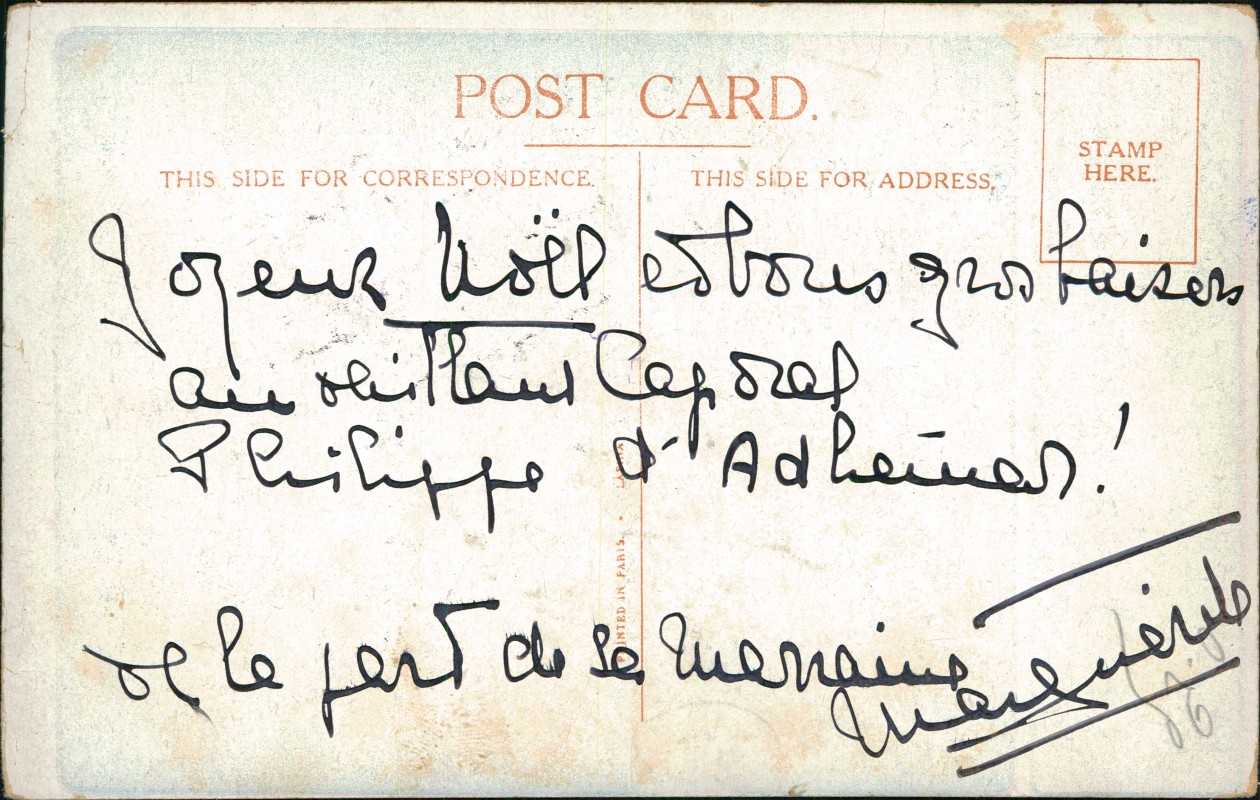 POST CARD.
THIS SIDE FOR CORRESPONDENCE.
THIS SIDE FOR ADDRESS.
STAMP
HERE.
Joyeux Noël et bons gros baisers
au vaillant Caporal
Philippe d'Adhémar!
de la part de sa Marraine
Marguerite
PRINTED IN PARIS.